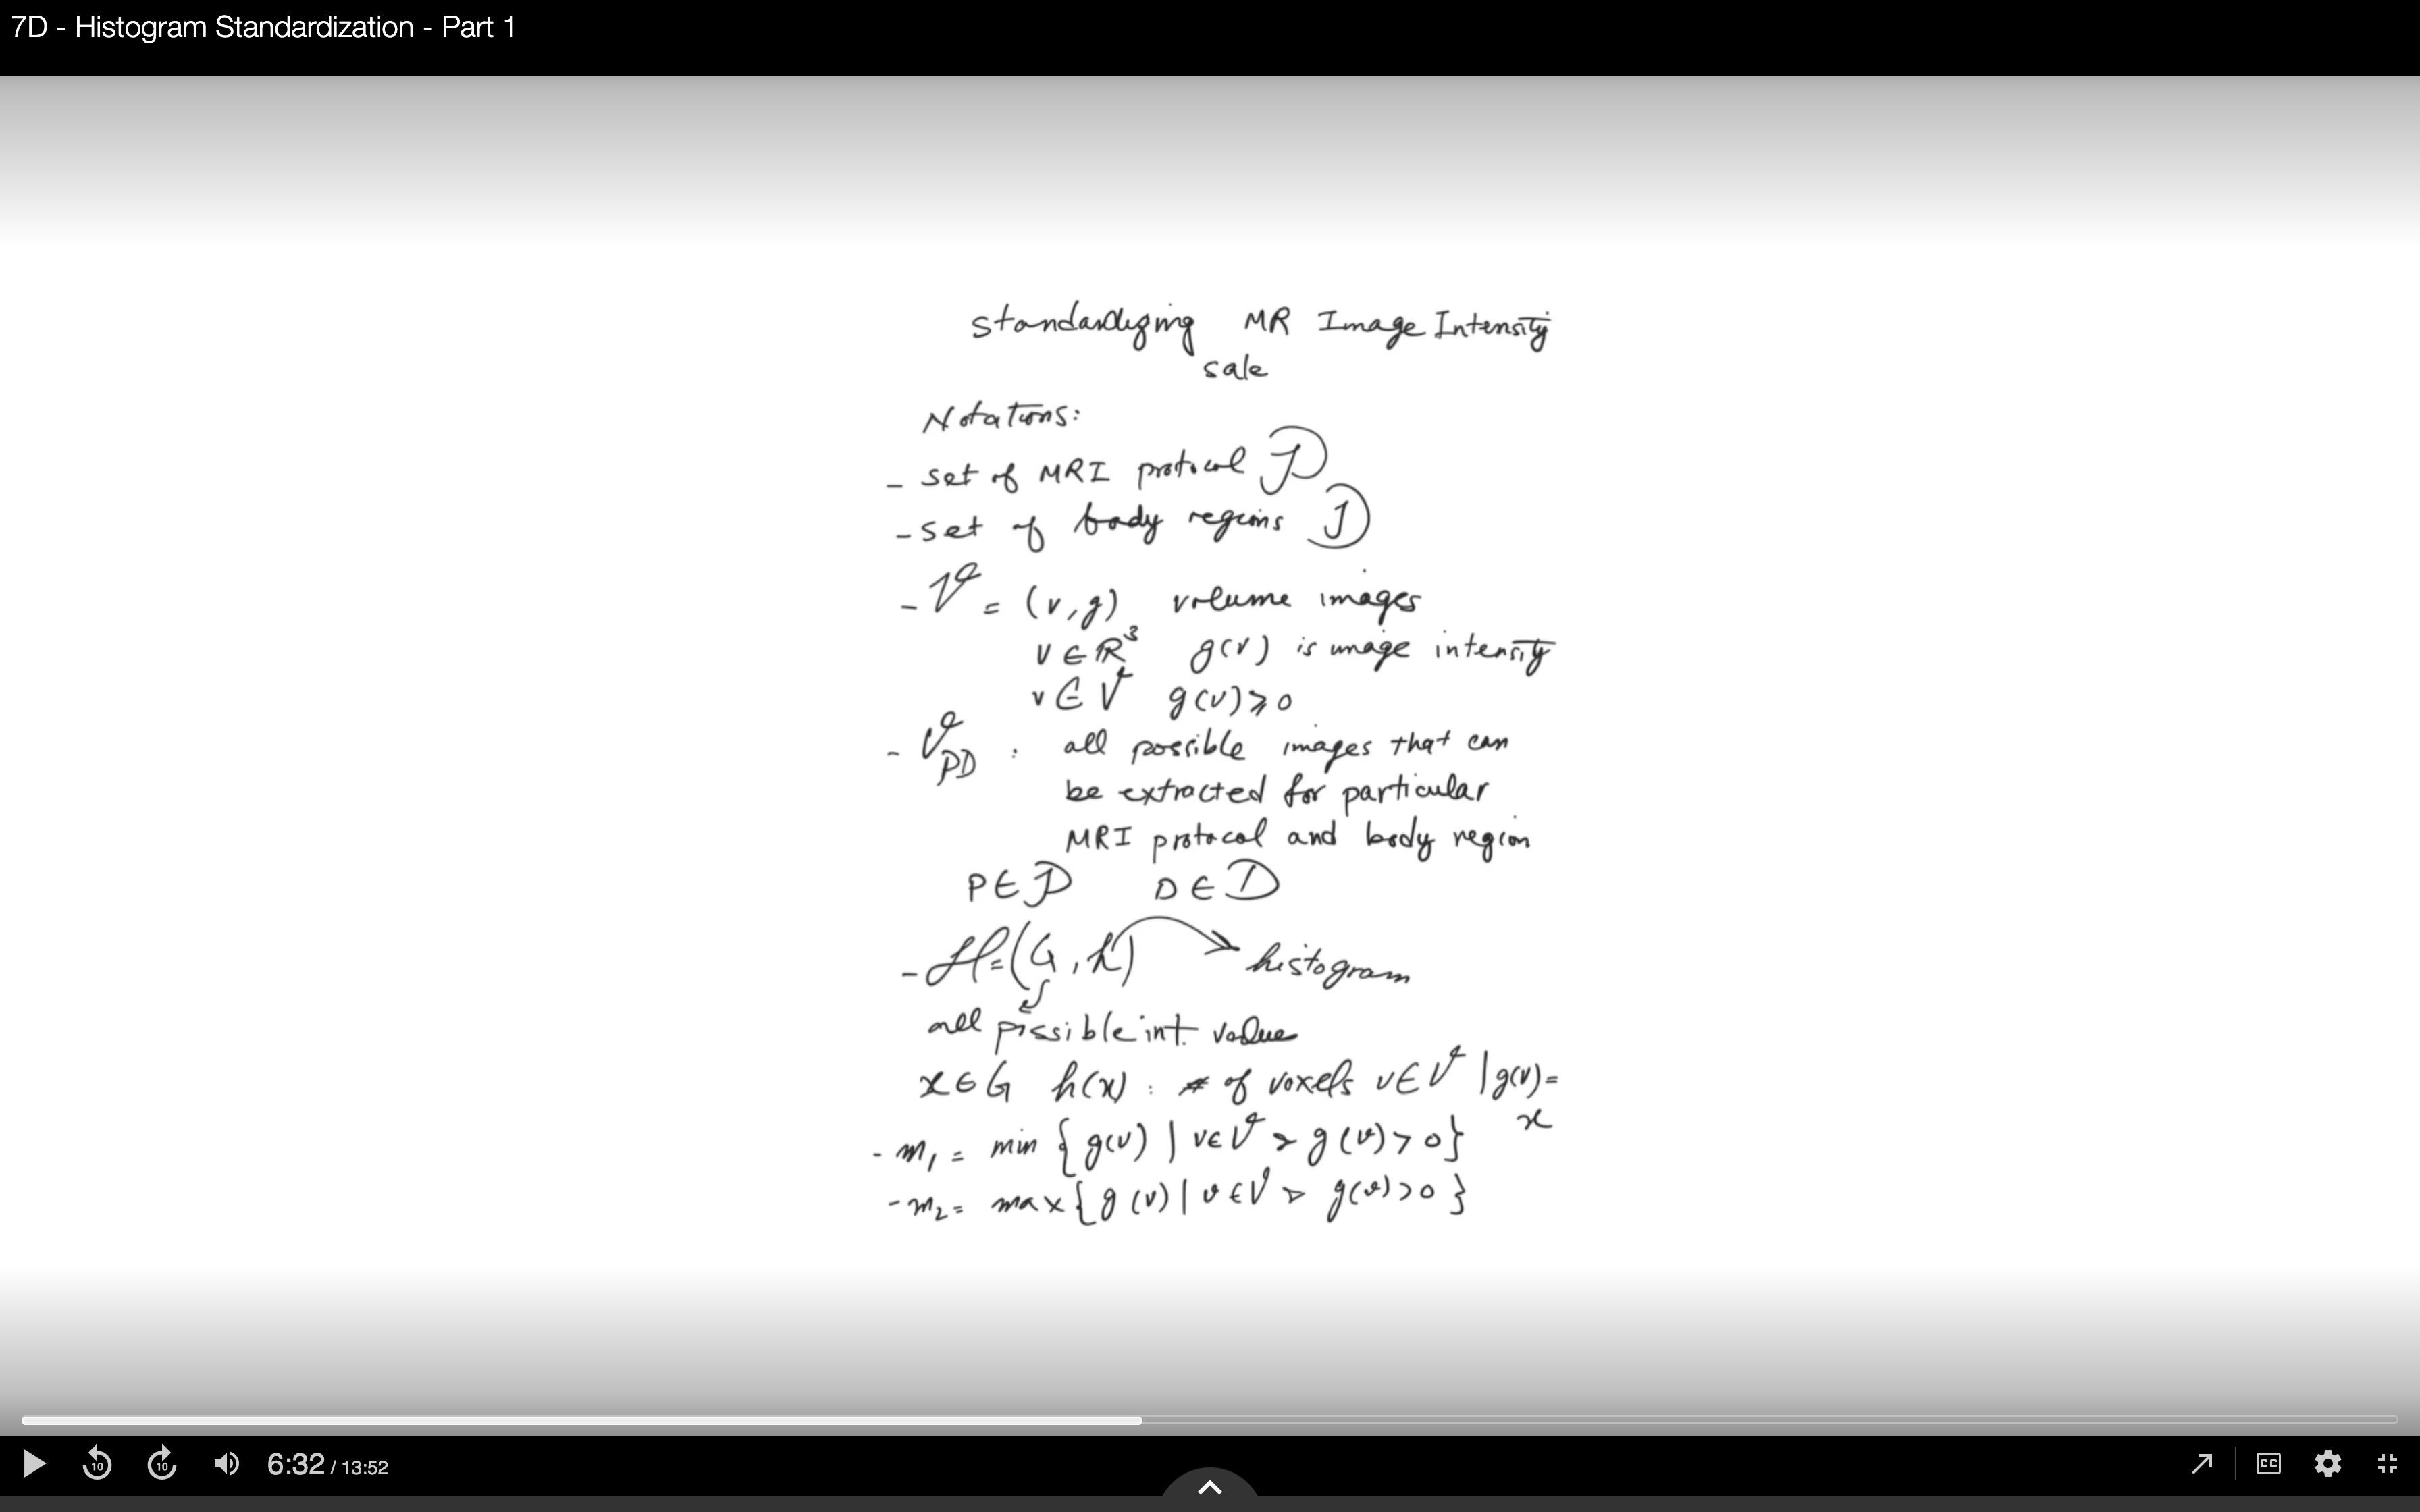 7D - Histogram Standardization - Part 1
Standardizing MR Image Intensity
sale
Notations:
- set of MRI protocol 𝒫
- set of body regions 𝒟
- 𝒱 = (v, g) volume images
v ∈ ℝ³ g(v) is image intensity
v ∈ V g(v) ⩾ 0
- 𝒱PD : all possible images that can
be extracted for particular
MRI protocol and body region
P ∈ 𝒫 D ∈ 𝒟
- ℋ = (G, h) → histogram
all possible int. value
x ∈ G h(x) : # of voxels v ∈ 𝒱 | g(v) =
x
- m₁ = min { g(v) | v ∈ 𝒱 & g(v) > 0 }
- m₂ = max { g(v) | v ∈ 𝒱 & g(v) > 0 }
10 10 6:32 / 13:52 CC